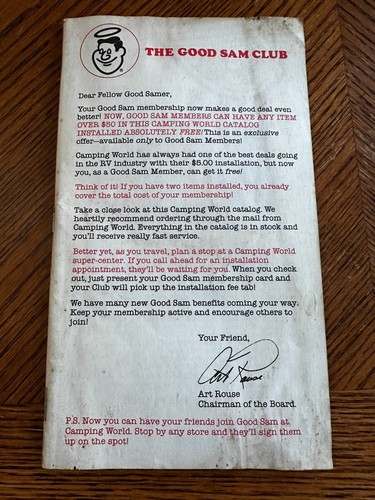 THE GOOD SAM CLUB
Dear Fellow Good Samer,
Your Good Sam membership now makes a good deal even
better! NOW, GOOD SAM MEMBERS CAN HAVE ANY ITEM
OVER $50 IN THIS CAMPING WORLD CATALOG
INSTALLED ABSOLUTELY FREE! This is an exclusive
offer—available only to Good Sam Members!
Camping World has always had one of the best deals going
in the RV industry with their $5.00 installation, but now
you, as a Good Sam Member, can get it free!
Think of it! If you have two items installed, you already
cover the total cost of your membership!
Take a close look at this Camping World catalog. We
heartily recommend ordering through the mail from
Camping World. Everything in the catalog is in stock and
you'll receive really fast service.
Better yet, as you travel, plan a stop at a Camping World
super-center. If you call ahead for an installation
appointment, they'll be waiting for you. When you check
out, just present your Good Sam membership card and
your Club will pick up the installation fee tab!
We have many new Good Sam benefits coming your way.
Keep your membership active and encourage others to
join!
Your Friend,
Art Rouse
Art Rouse
Chairman of the Board.
P.S. Now you can have your friends join Good Sam at
Camping World. Stop by any store and they'll sign them
up on the spot!